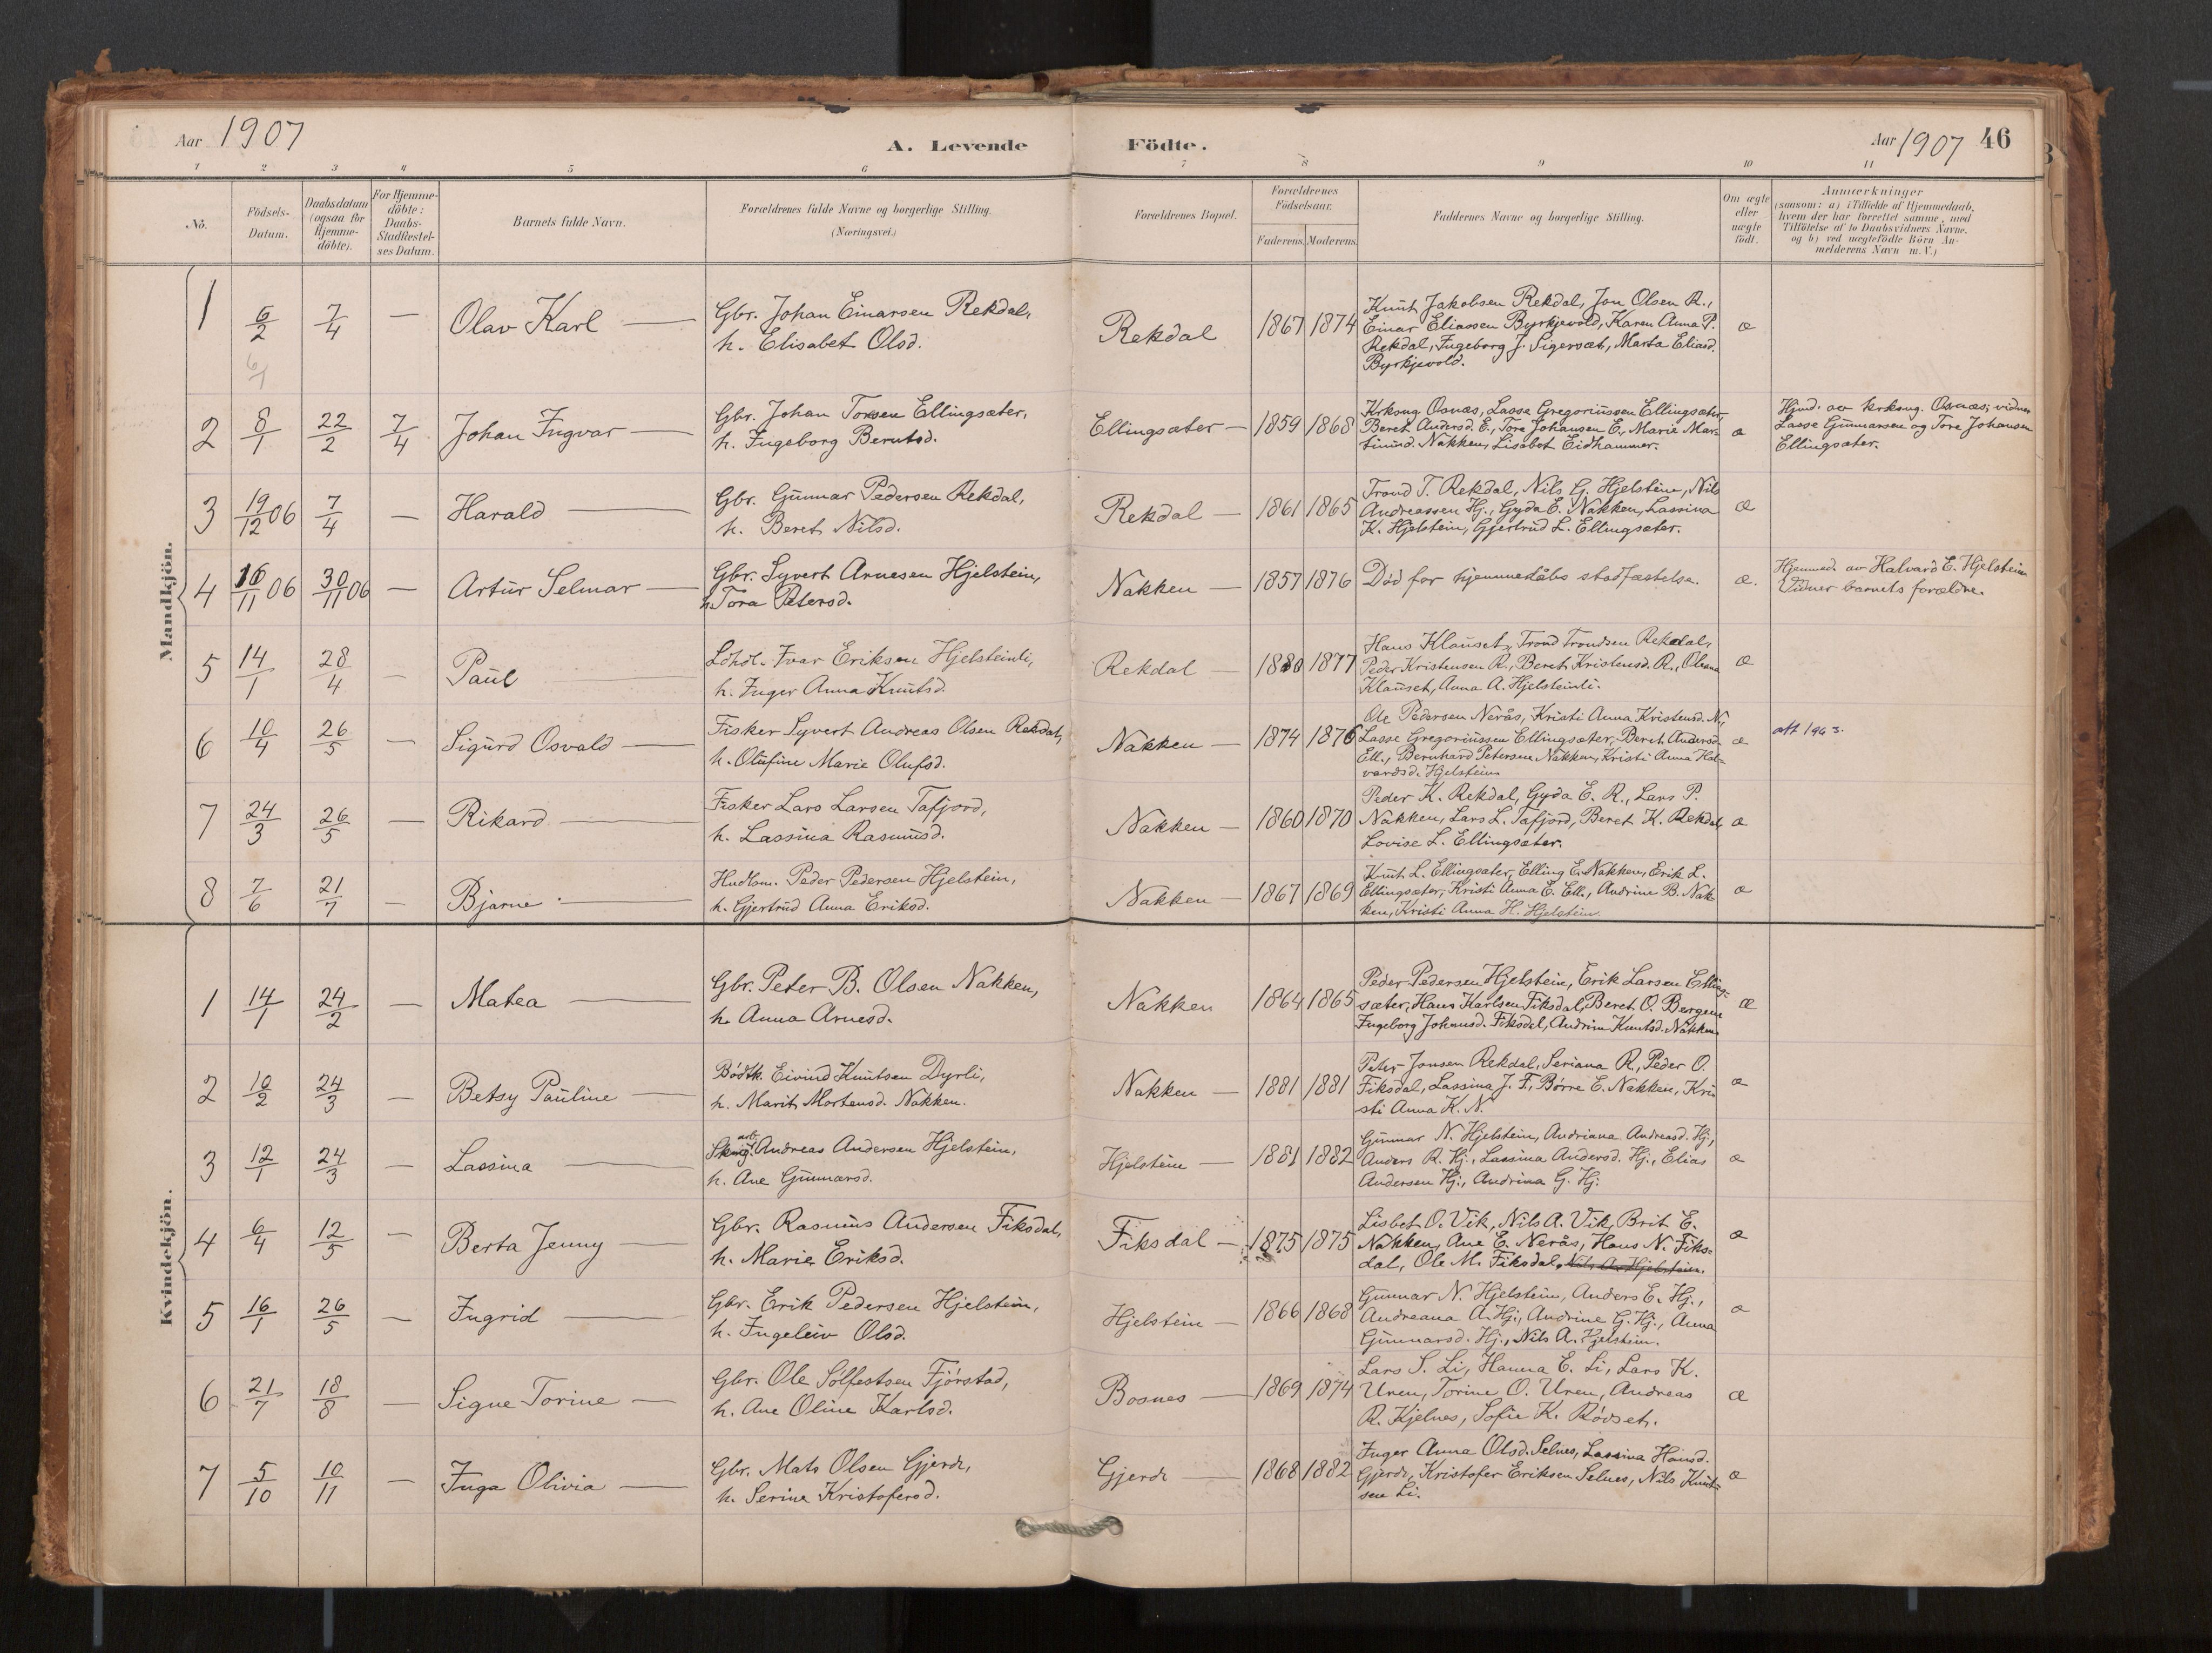 Aar 1907
A. Levende Födte.
Aar 1907 46
1 2 3 4 5 6 7 8 9 10 11
No.
Födsels-
Datum.
Daabsdatum
(ogsaa for
Hjemme-
döbte).
For Hjemme-
döbte:
Daabs-
Stadfæstel-
ses Datum.
Barnets fulde Navn.
Forældrenes fulde Navne og borgerlige Stilling.
(Næringsvei.)
Forældrenes Bopæl.
Forældrenes
Födselsaar.
Faderens. Moderens.
Faddernes Navne og borgerlige Stilling.
Om ægte
eller
uægte
födt.
Anmærkninger
(saasom: a) i Tilfælde af Hjemmedaab,
hvem der har forrettet samme, med
Tilföielse af to Daabsvidners Navne.
og b) ved uægtefödte Börn An-
melderens Navn m.V.)
Mandkjön.
1 6/2 7/4 — Olav Karl — Gbr. Johan Einarsen Rekdal,
h. Elisabet Olsd.
6/1
Rekdal 1867 1874
Knut Jakobsen Rekdal, Jon Olsen R.,
Einar Eliassen Byrkjevold, Karen Anna P.
Rekdal, Ingeborg J. Sigersæt, Marta Eliasd.
Byrkjevold.
æ
2 8/1 22/2 7/4 Johan Ingvar — Gbr. Johan Torsen Ellingsæter,
h. Ingeborg Berntsd.
Ellingsæter — 1859 1868
Krksng Osnæs, Lasse Gregoriussen Ellingsæter,
Beret Andersd. E., Tore Johansen E., Marie Mar-
tinusd. Nakken, Lisabet Eidhammer.
æ
Hjmd. av krksng. Osnæs; vidner
Lasse Gunnarsen og Tore Johansen
Ellingsæter.
3 19/12 06 7/4 — Harald — Gbr. Gunnar Pedersen Rekdal,
h. Beret Nilsd.
Rekdal — 1861 1865
Trond T. Rekdal, Nils G. Hjelstein, Nils
Andreassen Hj., Gyda E. Nakken, Lassina
K. Hjelstein, Gjertrud L. Ellingsæter.
æ
4 16/11 06 30/11 06 — Artur Selmar — Gbr. Syvert Arnesen Hjelstein,
h. Tora Petersd.
Nakken — 1857 1876
Död før hjemmedåbs stadfæstelse.
æ.
Hjemmed. av Halvard E. Hjelstein
Vidner barnets forældre.
5 14/1 28/4 — Paul — Løhdl. Ivar Eriksen Hjelsteinli,
h. Inger Anna Knutsd.
Rekdal — 1880 1877
Hans Klauset, Trond Trondsen Rekdal,
Peder Kristensen R., Beret Kristensd. R., Olena
Klauset, Anna A. Hjelsteinli.
æ
6 10/4 26/5 — Sigurd Osvald — Fisker Syvert Andreas Olsen Rekdal,
h. Olufine Marie Olufsd.
Nakken — 1874 1876
Ole Pedersen Nerås, Kristi Anna Kristensd. N.,
Lasse Gregoriussen Ellingsæter, Beret Andersd.
Ell., Bernhard Petersen Nakken, Kristi Anna Hal-
vardsd. Hjelstein
æ
att 1943.
7 24/3 26/5 — Rikard — Fisker Lars Larsen Tafjord,
h. Lassina Rasmusd.
Nakken — 1860 1870
Peder K. Rekdal, Gyda E. R., Lars P.
Nakken, Lars L. Tafjord, Beret K. Rekdal,
Lovise L. Ellingsæter.
æ
8 7/6 21/7 — Bjarne — Hndlsm. Peder Pedersen Hjelstein,
h. Gjertrud Anna Eriksd.
Nakken — 1867 1869
Knut L. Ellingsæter, Elling E. Nakken, Erik L.
Ellingsæter, Kristi Anna E. Ell., Andrine B. Nak-
ken, Kristi Anna H. Hjelstein
æ
Kvindekjön.
1 14/1 24/2 — Matea — Gbr. Peter B. Olsen Nakken,
h. Anna Arnesd.
Nakken 1864 1865
Peder Pedersen Hjelstein, Erik Larsen Elling-
sæter, Hans Karlsen Fiksdal, Beret O. Bergem
Ingeborg Johansd. Fiksdal, Andrine Knutsd. Nakken
æ
2 10/2 24/3 — Betsy Pauline — Bødtk. Eivind Knutsen Dyrli,
h. Marit Mortensd. Nakken.
Nakken — 1881 1881
Peter Jonsen Rekdal, Seriana R., Peder O.
Fiksdal, Lassina J. F., Børre E. Nakken, Kri-
sti Anna K. N.
æ
3 12/1 24/3 — Lassina — Skrog. arb. Andreas Andersen Hjelstein,
h. Ane Gunnarsd.
Hjelstein — 1881 1882
Gunnar N. Hjelstein, Andriana Andreasd. Hj.,
Anders R. Hj., Lassina Andersd. Hj., Elias
Andersen Hj., Andrina G. Hj.
æ
4 6/4 12/5 — Berta Jenny — Gbr. Rasmus Andersen Fiksdal,
h. Marie Eriksd.
Fiksdal — 1875 1875
Lisbet O. Vik, Nils A. Vik, Brit E.
Nakken, Ane E. Nerås, Hans N. Fiks-
dal, Ole M. Fiksdal, Nils A. Hjelstein.
æ
5 16/1 26/5 — Ingrid — Gbr. Erik Pedersen Hjelstein,
h. Ingeleiv Olsd.
Hjelstein — 1866 1868
Gunnar N. Hjelstein, Anders E. Hj.,
Andreana A. Hj., Andrine G. Hj., Anna
Gunnarsd. Hj., Nils A. Hjelstein.
æ
6 21/7 18/8 — Signe Torine — Gbr. Ole Sølfestsen Fjørstad,
h. Ane Oline Karlsd.
Bosnes — 1869 1874
Lars S. Li, Hanna E. Li, Lars K.
Uren, Torine O. Uren, Andreas
R. Kjelnes, Sofie K. Rødset.
æ
7 5/10 10/11 — Inga Olivia — Gbr. Mats Olsen Gjerde,
h. Serine Kristofersd.
Gjerde — 1868 1882
Inger Anna Olsd. Selnes, Lassina Hansd.
Gjerde, Kristofer Eriksen Selnes, Nils Knut-
sen Li.
æ